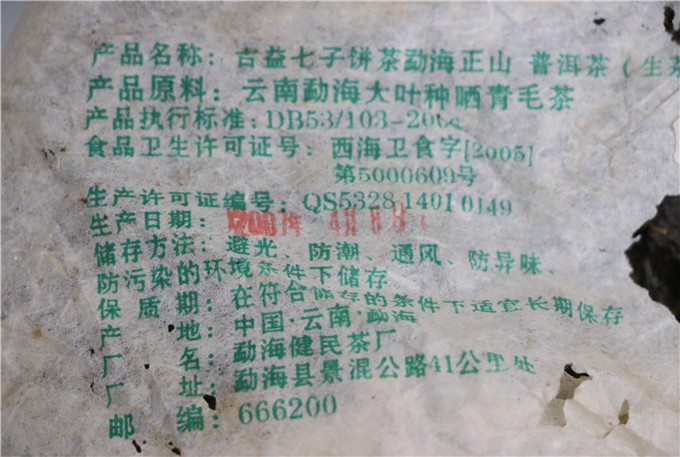 产品名称：古益七子饼茶勐海正山 普洱茶（生茶
产品原料：云南勐海大叶种晒青毛茶
产品执行标准：DB53/103-200
食品卫生许可证号：西海卫食字[2005]
第5000609号
生产许可证编号：QS5328 1401 0149
生产日期：
储存方法：避光、防潮、通风、防异味、
防污染的环境条件下储存、
保质期：在符合储存的条件下适宜长期保存
产地：中国·云南·勐海
厂名：勐海健民茶厂
厂址：勐海县景混公路41公里处
邮编：666200